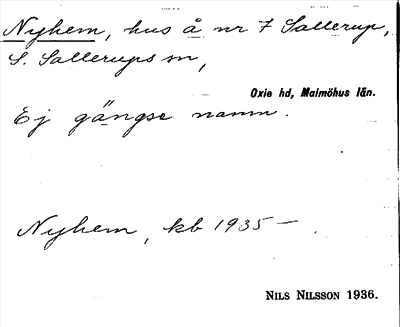 Nyhem, hus å nr 7 Sallerup,
S. Sallerups sn,
Oxie hd, Malmöhus län.
Ej gängse namn.
Nyhem, kb 1935 –
NILS NILSSON 1936.